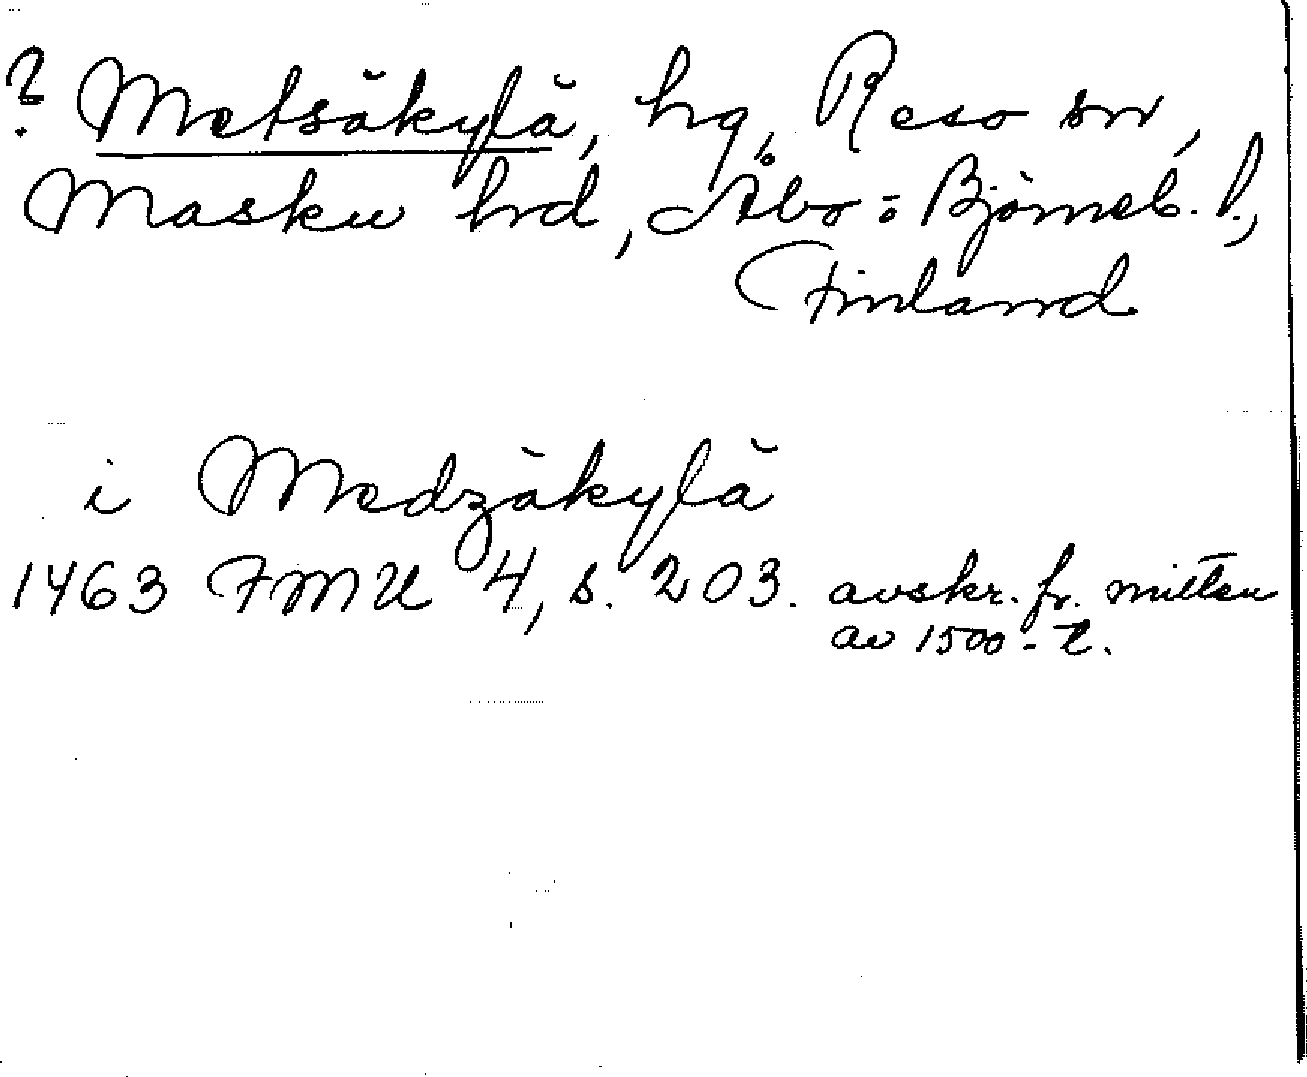 ? Metsäkylä, hg, Reso sn,
Masku hrd, Åbo o Björneb. l.,
Finland
i Medzäkylä
1463 FMU 4, s. 203. avskr. fr. mitten
av 1500-t.